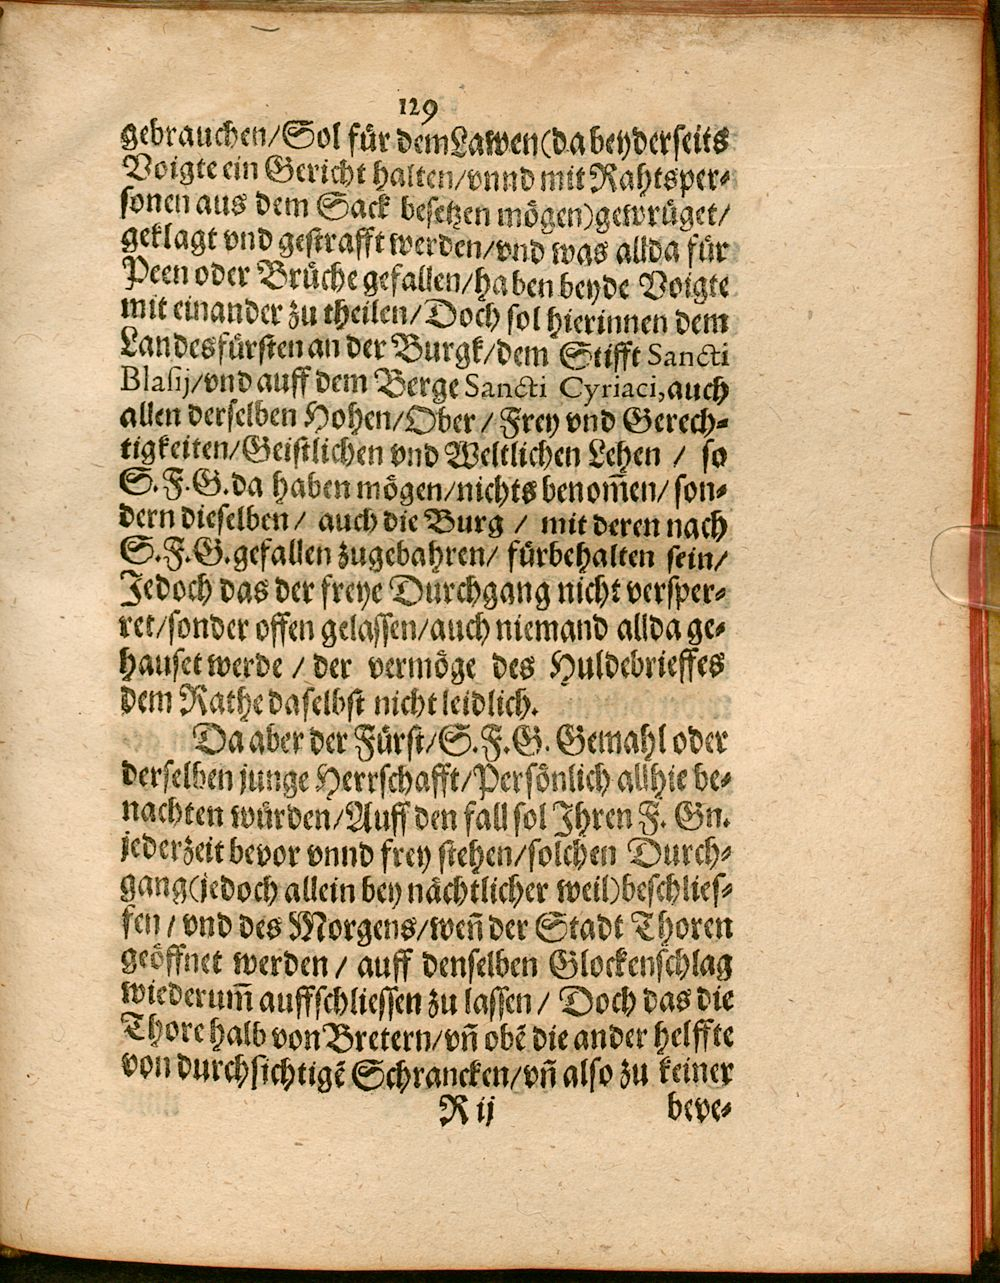 129
gebrauchen/Sol für dem Lawen(da beyderseits
Voigte ein Gericht halten/vnnd mit Rahtsper-
sonen aus dem Sack besetzen mögen)gewrüget/
geklagt vnd gestrafft werden/vnd was allda für
Peen oder Brüche gefallen/haben beyde Voigte
mit einander zu theilen/Doch sol hierinnen dem
Landesfürsten an der Burgk/dem Stifft Sancti
Blasij/vnd auff dem Berge Sancti Cyriaci,auch
allen derselben Hohen/Ober/Frey vnd Gerech-
tigkeiten/Geistlichen vnd Weltlichen Lehen / so
S.F.G.da haben mögen/nichts benom̃en/son-
dern dieselben/ auch die Burg / mit deren nach
S.F.G.gefallen zugebahren/ fürbehalten sein/
Jedoch das der freye Durchgang nicht versper-
ret/sonder offen gelassen/auch niemand allda ge-
hauset werde / der vermöge des Huldebrieffes
dem Rathe daselbst nicht leidlich.
Da aber der Fürst/S.F.G. Gemahl oder
derselben junge Herrschafft/Persönlich allhie be-
nachten würden/Auff den fall sol Ihren F. Gn.
jederzeit bevor vnnd frey stehen/solchen Durch-
gang(jedoch allein bey nächtlicher weil)beschlies-
sen/ vnd des Morgens/weñ der Stadt Thoren
geöffnet werden / auff denselben Glockenschlag
wiederum̃ auffschliessen zu lassen/ Doch das die
Thore halb von Bretern/vñ obẽ die ander helffte
von durchsichtigẽ Schrancken/vñ also zu keiner
R ij beve-